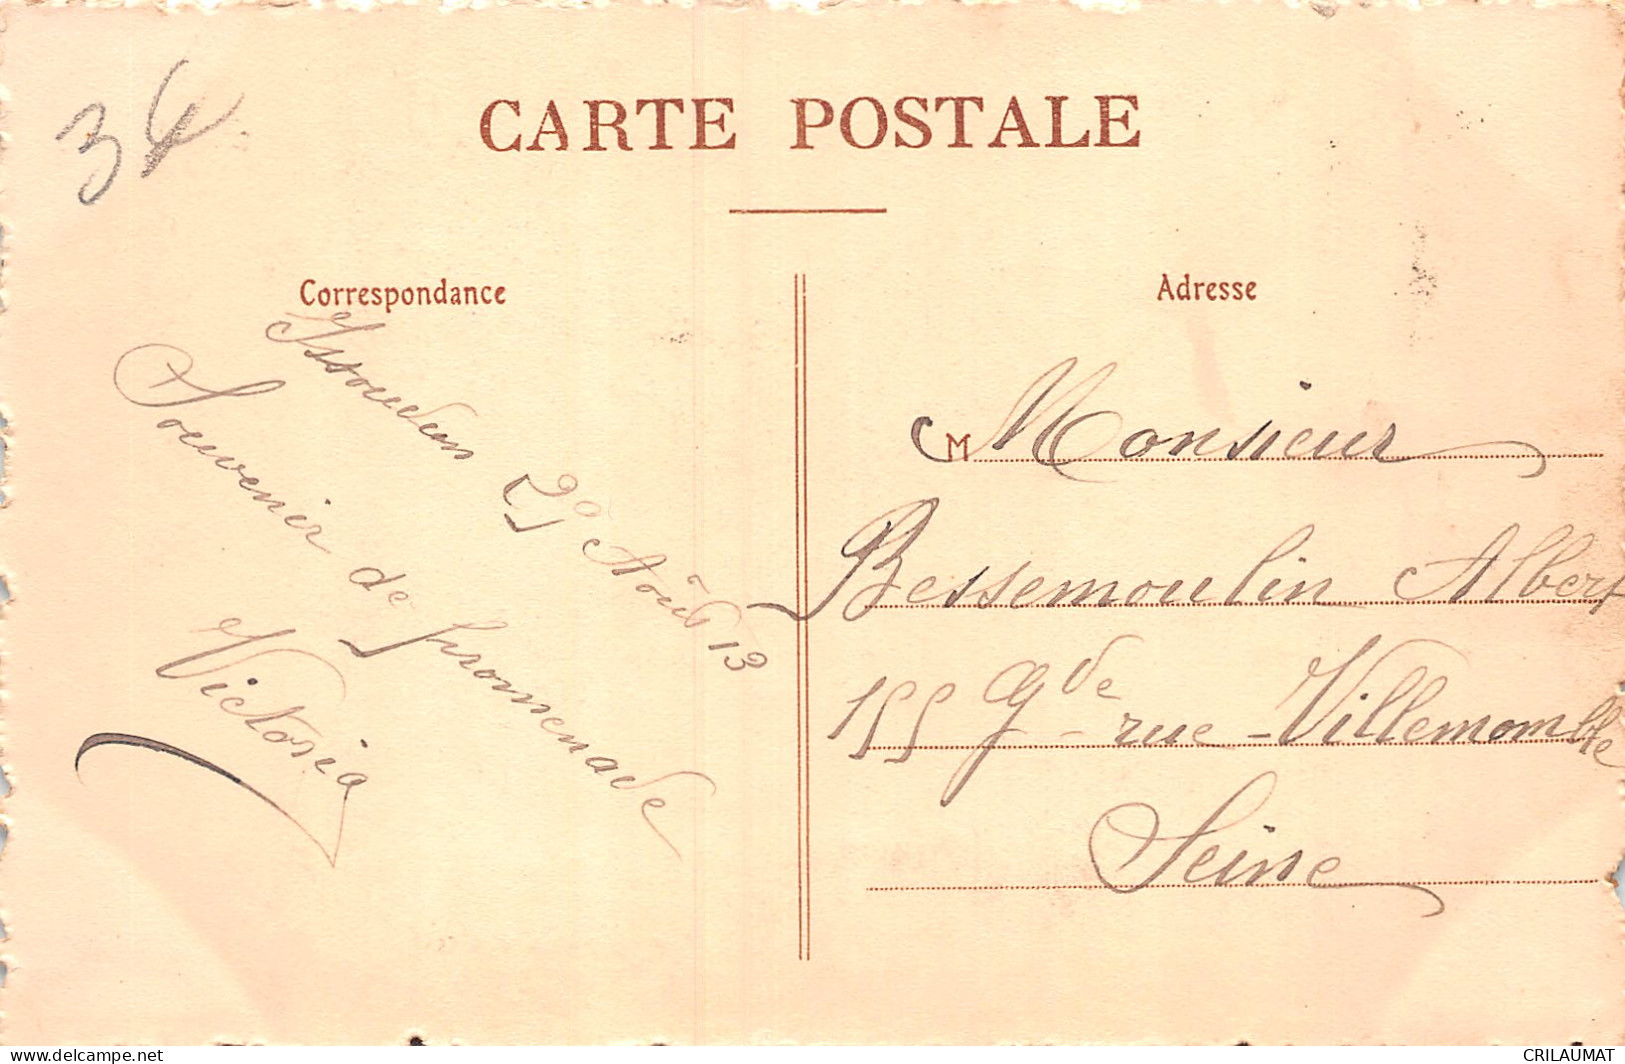 34
CARTE POSTALE
Correspondance
Adresse
Issoudun 29 Août 13
Souvenir de promenade
Victoria
M Monsieur
Bessemoulin Albert
155 Gde rue - Villemomble
Seine
www.delcampe.net
CRILAUMAT